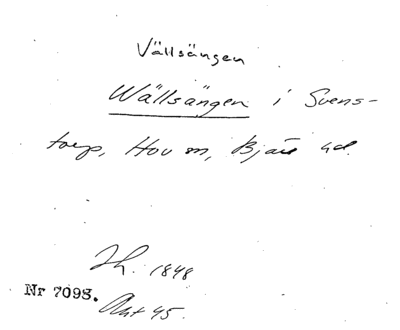 Vällsängen
Wällsängen i Svens-
torp, Hov sn, Bjäre hd.
Jh. 1848
Nr 7098.
Akt 45.